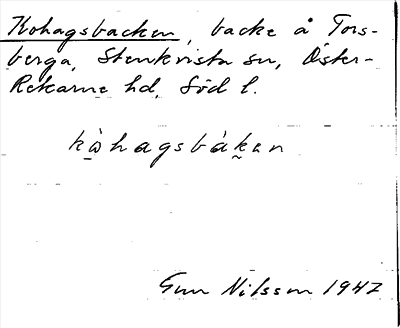 Kohagsbacken, backe å Tors-
berga, Stenkvista sn, Öster-
Rekarne hd, Söd l.
kò̱hagsbák̰en
Gun Nilsson 1947